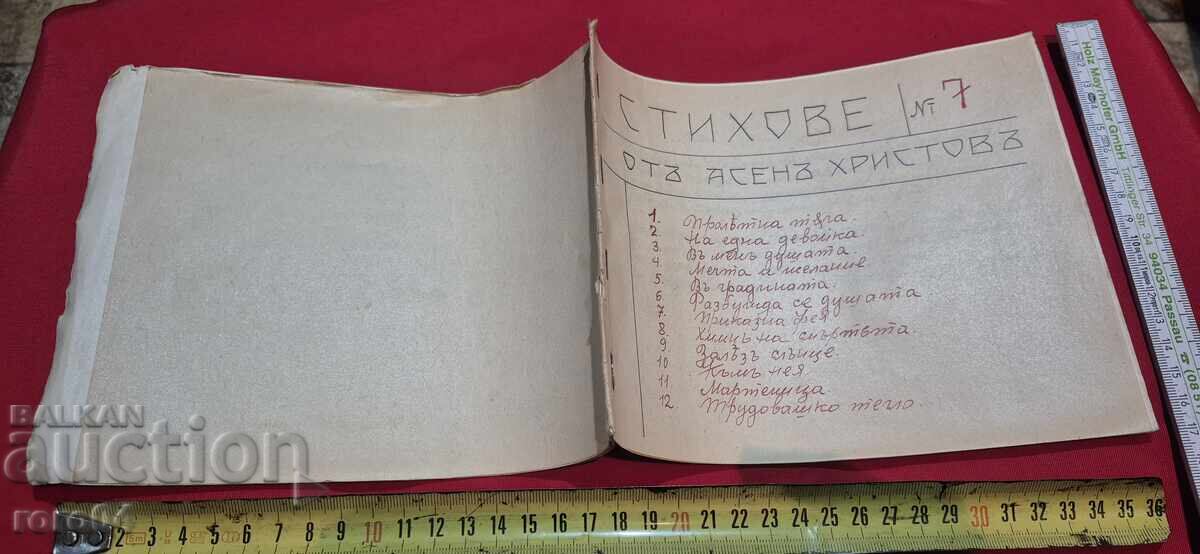 СТИХОВЕ № 7
ОТЪ АСЕНЪ ХРИСТОВЪ
1. Пролѣтна тѫга.
2. На една девойка.
3. Въ менъ душата.
4. Мечта и желание
5. Въ градината.
6. Разбужда се душата.
7. Приказна фея
8. Химнъ на смъртьта.
9. Залѣзъ слънце.
10. Къмъ нея.
11. Мартеница.
12. Трудовашко тегло.
BALKAN
auction
roro94
Holz Mayrhofer GmbH Tittlinger Str. 94 94034 Passau ☎ (08 5
2 3 4 5 6 7 8 9 10 11 12 13 14 15 16 17 18 19 20 21 22 23 24 25 26 27 28 29 30 31 32 33 34 35 36